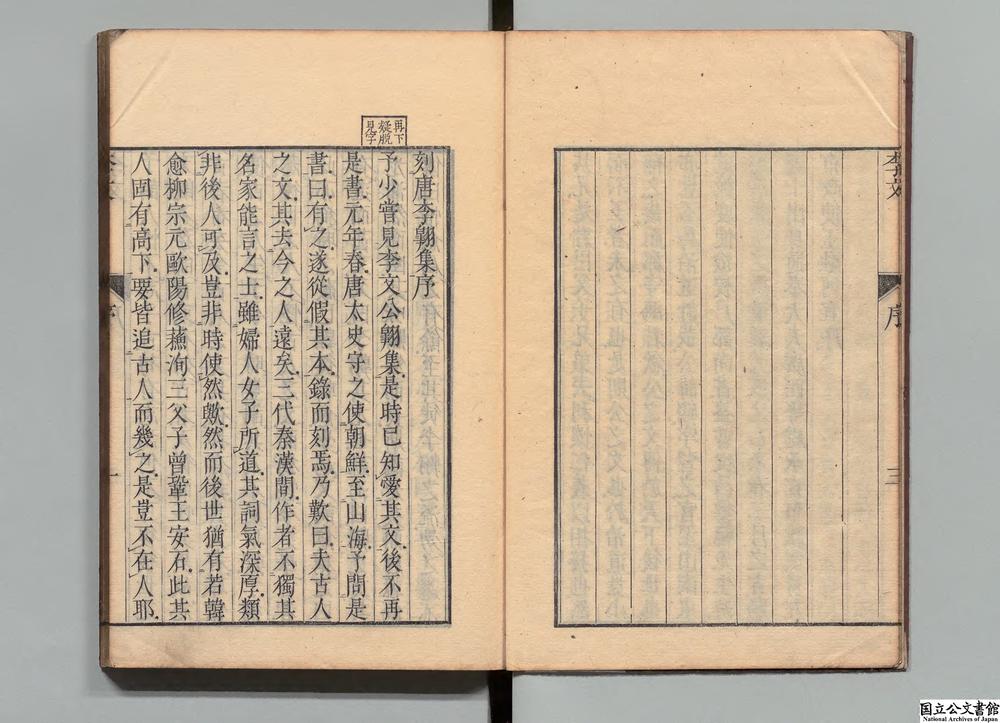 李文
序
三
再下
疑脱
見字
刻唐李翶集序
予少嘗見李文公翶集是時已知愛其文後不再
是書元年春唐太史守之使朝鮮至山海予問是
書曰有之遂從假其本錄而刻焉乃歎曰夫古人
之文其去今之人遠矣三代秦漢間作者不獨其
名家能言之士雖婦人女子所道其詞氣深厚類
非後人可及豈非時使然歟然而後世猶有若韓
愈柳宗元歐陽修蘇洵三父子曾鞏王安石此其
人固有高下要皆追古人而幾之是豈不在人耶
李文
序
一
国立公文書館
National Archives of Japan